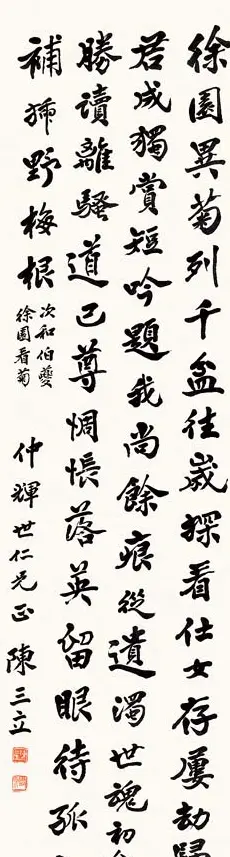 徐園異菊列千盆往歲探看仕女存屢劫歸
君成獨賞短吟題我尚餘痕從遺濁世魂初
勝讀離騷道已尊惆悵落英留眼待孤
補野梅根
次和伯夔
徐園看菊
仲輝世仁兄正 陳三立